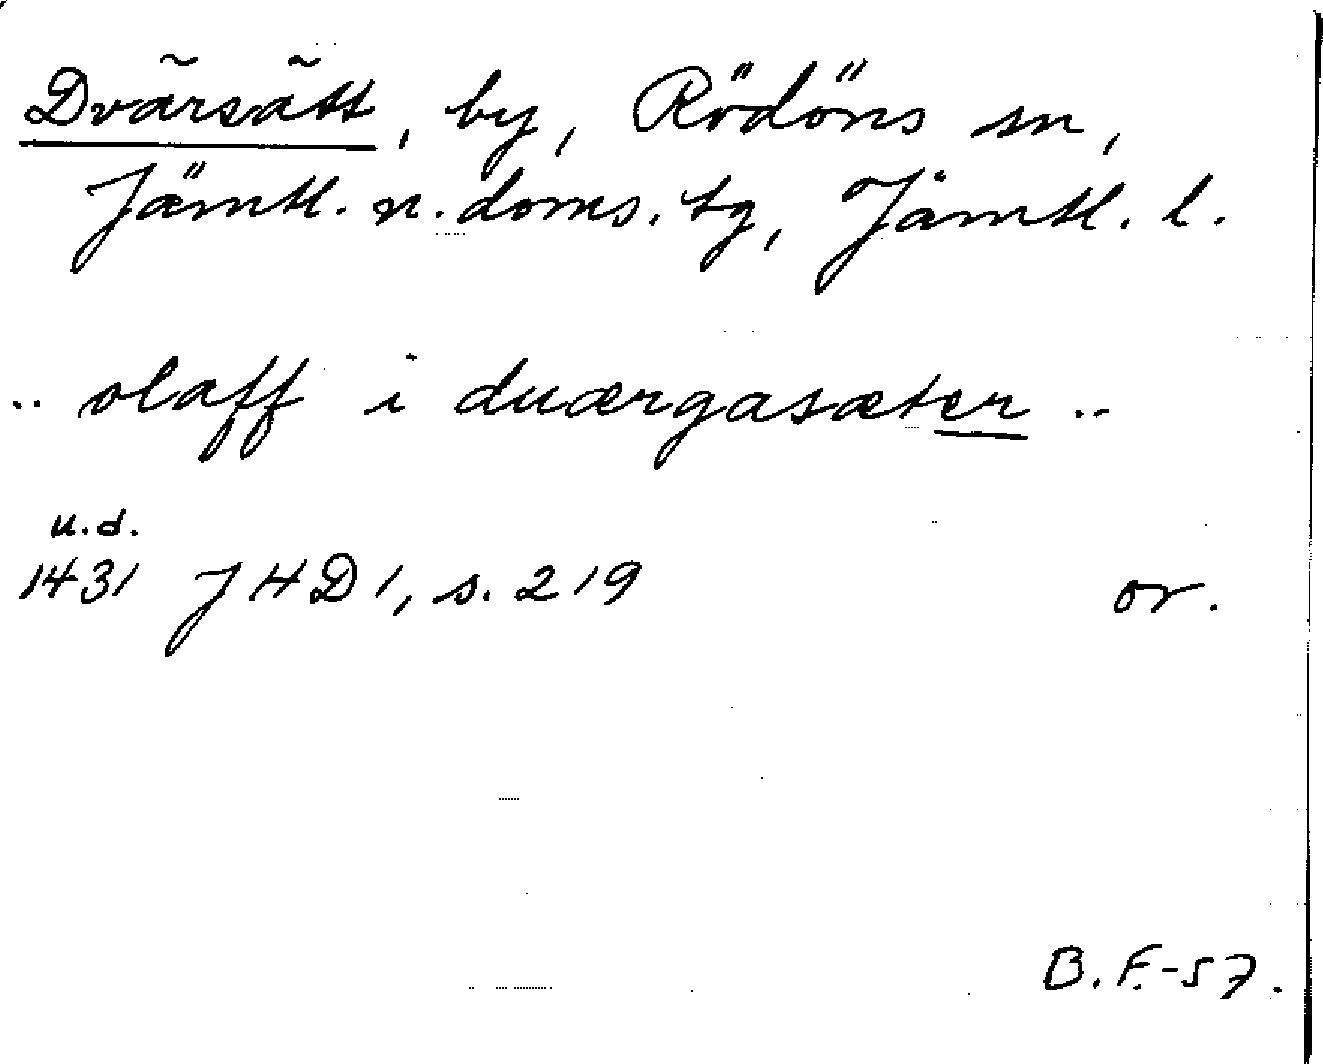 Dvärsätt, by, Rödöns sn,
Jämtl. n. doms. tg, Jämtl. l.
.. olaff i duærgasæter ..
u.d.
1431 JHD 1, s. 219 or.
B.F.-57.